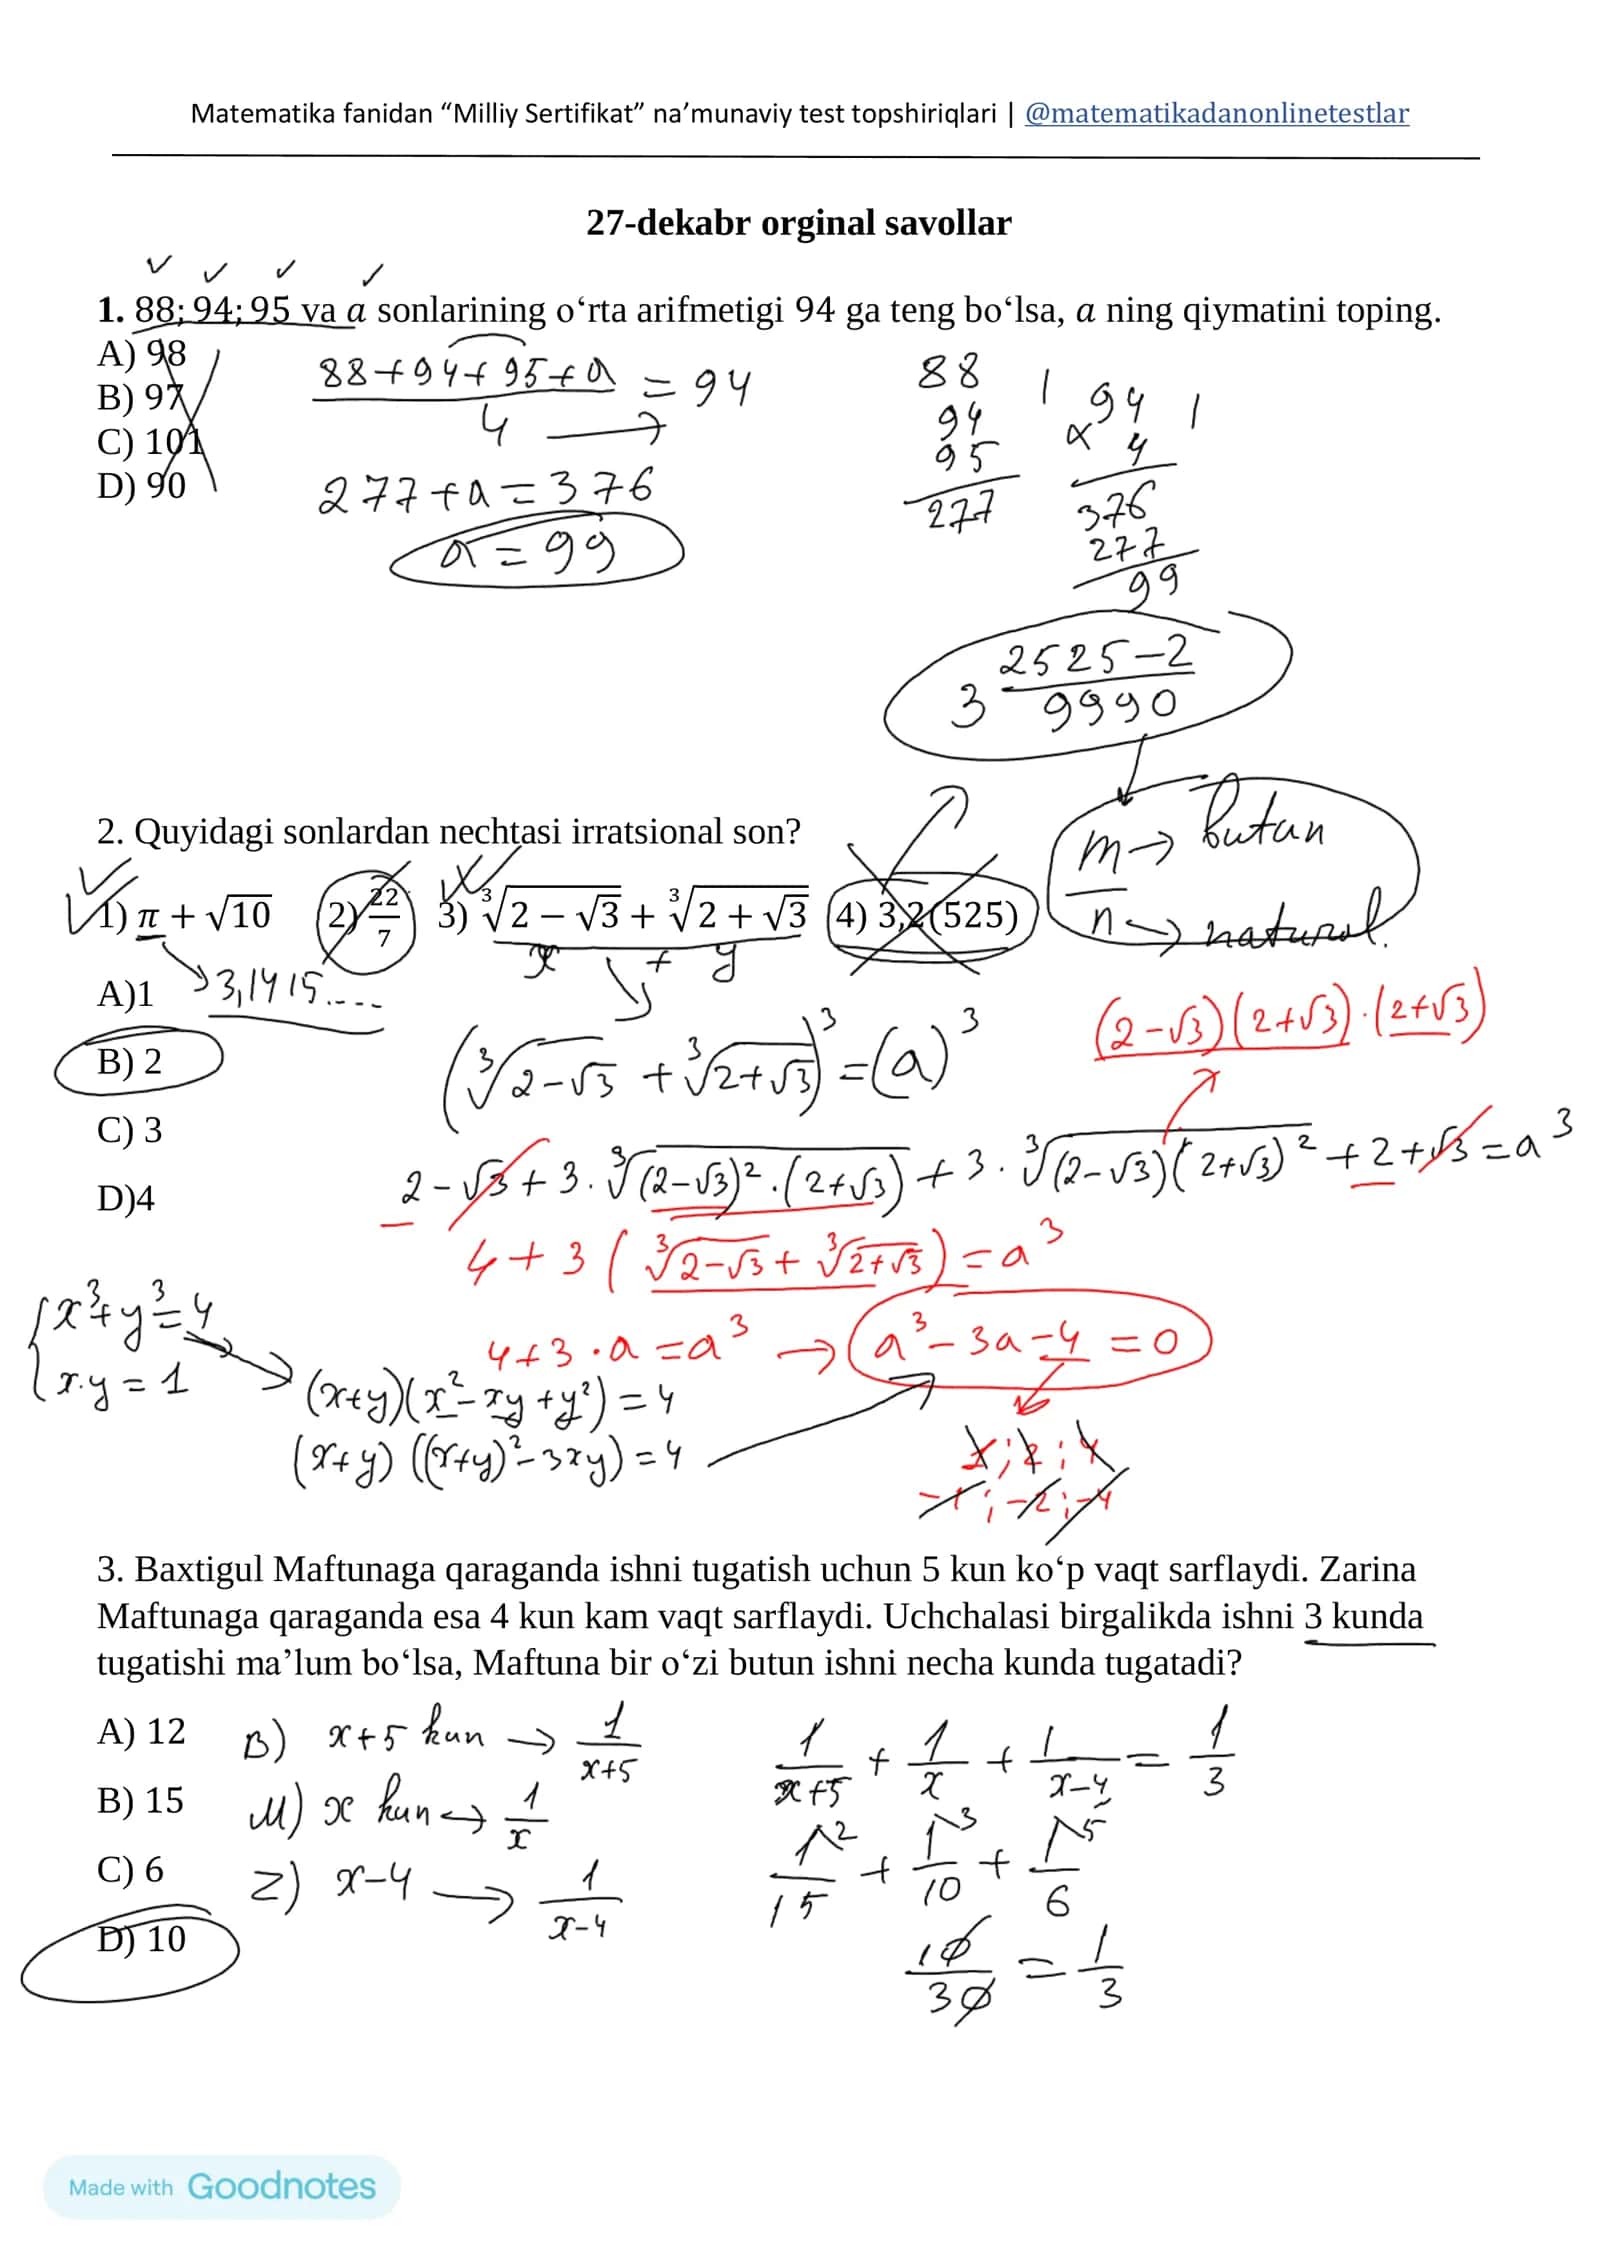 Matematika fanidan “Milliy Sertifikat” na’munaviy test topshiriqlari | @matematikadanonlinetestlar
27-dekabr orginal savollar
1. 88; 94; 95 va a sonlarining o‘rta arifmetigi 94 ga teng bo‘lsa, a ning qiymatini toping.
A) 98
B) 97
C) 101
D) 90
(88+94+95+a)/4 = 94
277+a=376
a=99
88
94
95
277
94
× 4
376
277
99
3 (2525-2)/9990
m → butun
n → natural.
2. Quyidagi sonlardan nechtasi irratsional son?
1) π + √10 2) 22/7 3) ∛(2 − √3) + ∛(2 + √3) 4) 3,2(525)
x + y
3,1415....
A)1
B) 2
C) 3
D)4
(∛(2-√3) + ∛(2+√3))³ = (a)³
(2-√3)(2+√3)·(2+√3)
2-√3+3·∛((2-√3)²·(2+√3)) + 3·∛((2-√3)(2+√3)²) + 2+√3 = a³
4+3(∛(2-√3) + ∛(2+√3)) = a³
4+3·a=a³ → a³-3a-4=0
x³+y³=4
x·y=1
(x+y)(x²-xy+y²)=4
(x+y)((x+y)²-3xy)=4
1; 2; 4
-1; -2; -4
3. Baxtigul Maftunaga qaraganda ishni tugatish uchun 5 kun ko‘p vaqt sarflaydi. Zarina
Maftunaga qaraganda esa 4 kun kam vaqt sarflaydi. Uchchalasi birgalikda ishni 3 kunda
tugatishi ma’lum bo‘lsa, Maftuna bir o‘zi butun ishni necha kunda tugatadi?
A) 12
B) 15
C) 6
D) 10
B) x+5 kun → 1/(x+5)
M) x kun → 1/x
Z) x-4 → 1/(x-4)
1/(x+5) + 1/x + 1/(x-4) = 1/3
1/15 ² + 1/10 ³ + 1/6 ⁵
10/30 = 1/3
Made with Goodnotes